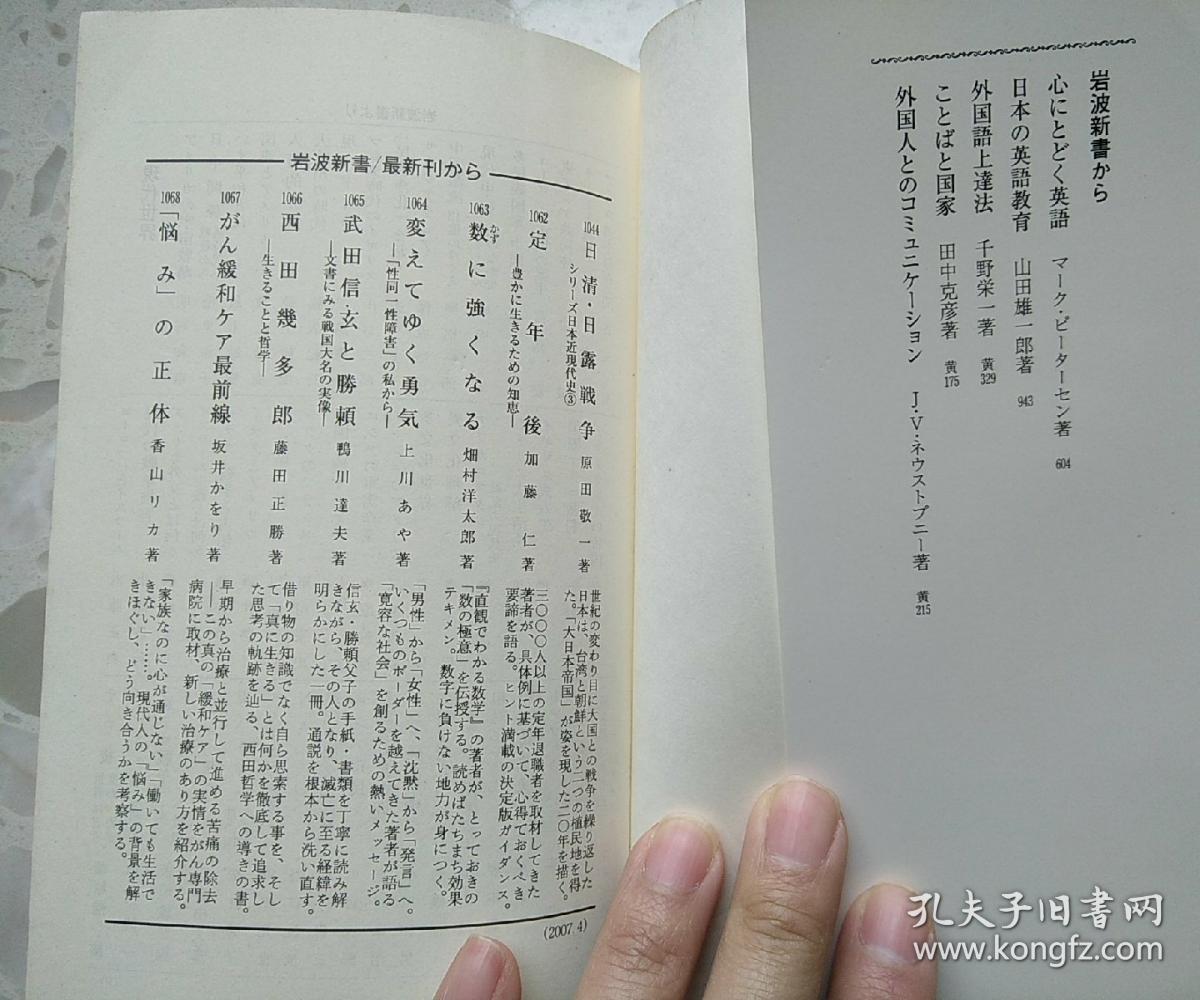 岩波新書から
心にとどく英語 マーク・ピーターセン著 604
日本の英語教育 山田雄一郎著 943
外国語上達法 千野栄一著 黄329
ことばと国家 田中克彦著 黄175
外国人とのコミュニケーション J・V・ネウストプニー著 黄215
岩波新書/最新刊から
1044 日清・日露戦争 原田敬一著
シリーズ日本近現代史③
世紀の変わり目に大国との戦争を繰り返した
日本は、台湾と朝鮮という二つの植民地を得
た。「大日本帝国」が姿を現した二〇年を描く。
1062 定年後 加藤仁著
―豊かに生きるための知恵―
三〇〇〇人以上の定年退職者を取材してきた
著者が、具体例に基づいて、心得ておくべき
要諦を語る。ヒント満載の決定版ガイダンス。
1063 数に強くなる 畑村洋太郎著
かず
『直観でわかる数学』の著者が、とっておきの
「数の極意」を伝授する。読めばたちまち効果
テキメン。数字に負けない地力が身につく。
1064 変えてゆく勇気 上川あや著
―「性同一性障害」の私から―
「男性」から「女性」へ、「沈黙」から「発言」へ。
いくつものボーダーを越えてきた著者が語る
「寛容な社会」を創るための熱いメッセージ。
1065 武田信玄と勝頼 鴨川達夫著
―文書にみる戦国大名の実像―
信玄・勝頼父子の手紙・書類を丁寧に読み解
きながら、その人となり、滅亡に至る経緯を
明らかにした一冊。通説を根本から洗い直す。
1066 西田幾多郎 藤田正勝著
―生きることと哲学―
借り物の知識でなく自ら思索する事を、そし
て「真に生きる」とは何かを徹底して追求し
た思考の軌跡を辿る、西田哲学への導きの書。
1067 がん緩和ケア最前線 坂井かをり著
早期から治療と並行して進める苦痛の除去
――この真の「緩和ケア」の実情をがん専門
病院に取材、新しい治療のあり方を紹介する。
1068 「悩み」の正体 香山リカ著
「家族なのに心が通じない」「働いても生活で
きない」……。現代人の「悩み」の背景を解
きほぐし、どう向き合うかを考察する。
(2007.4)
孔夫子旧书网
www.kongfz.com